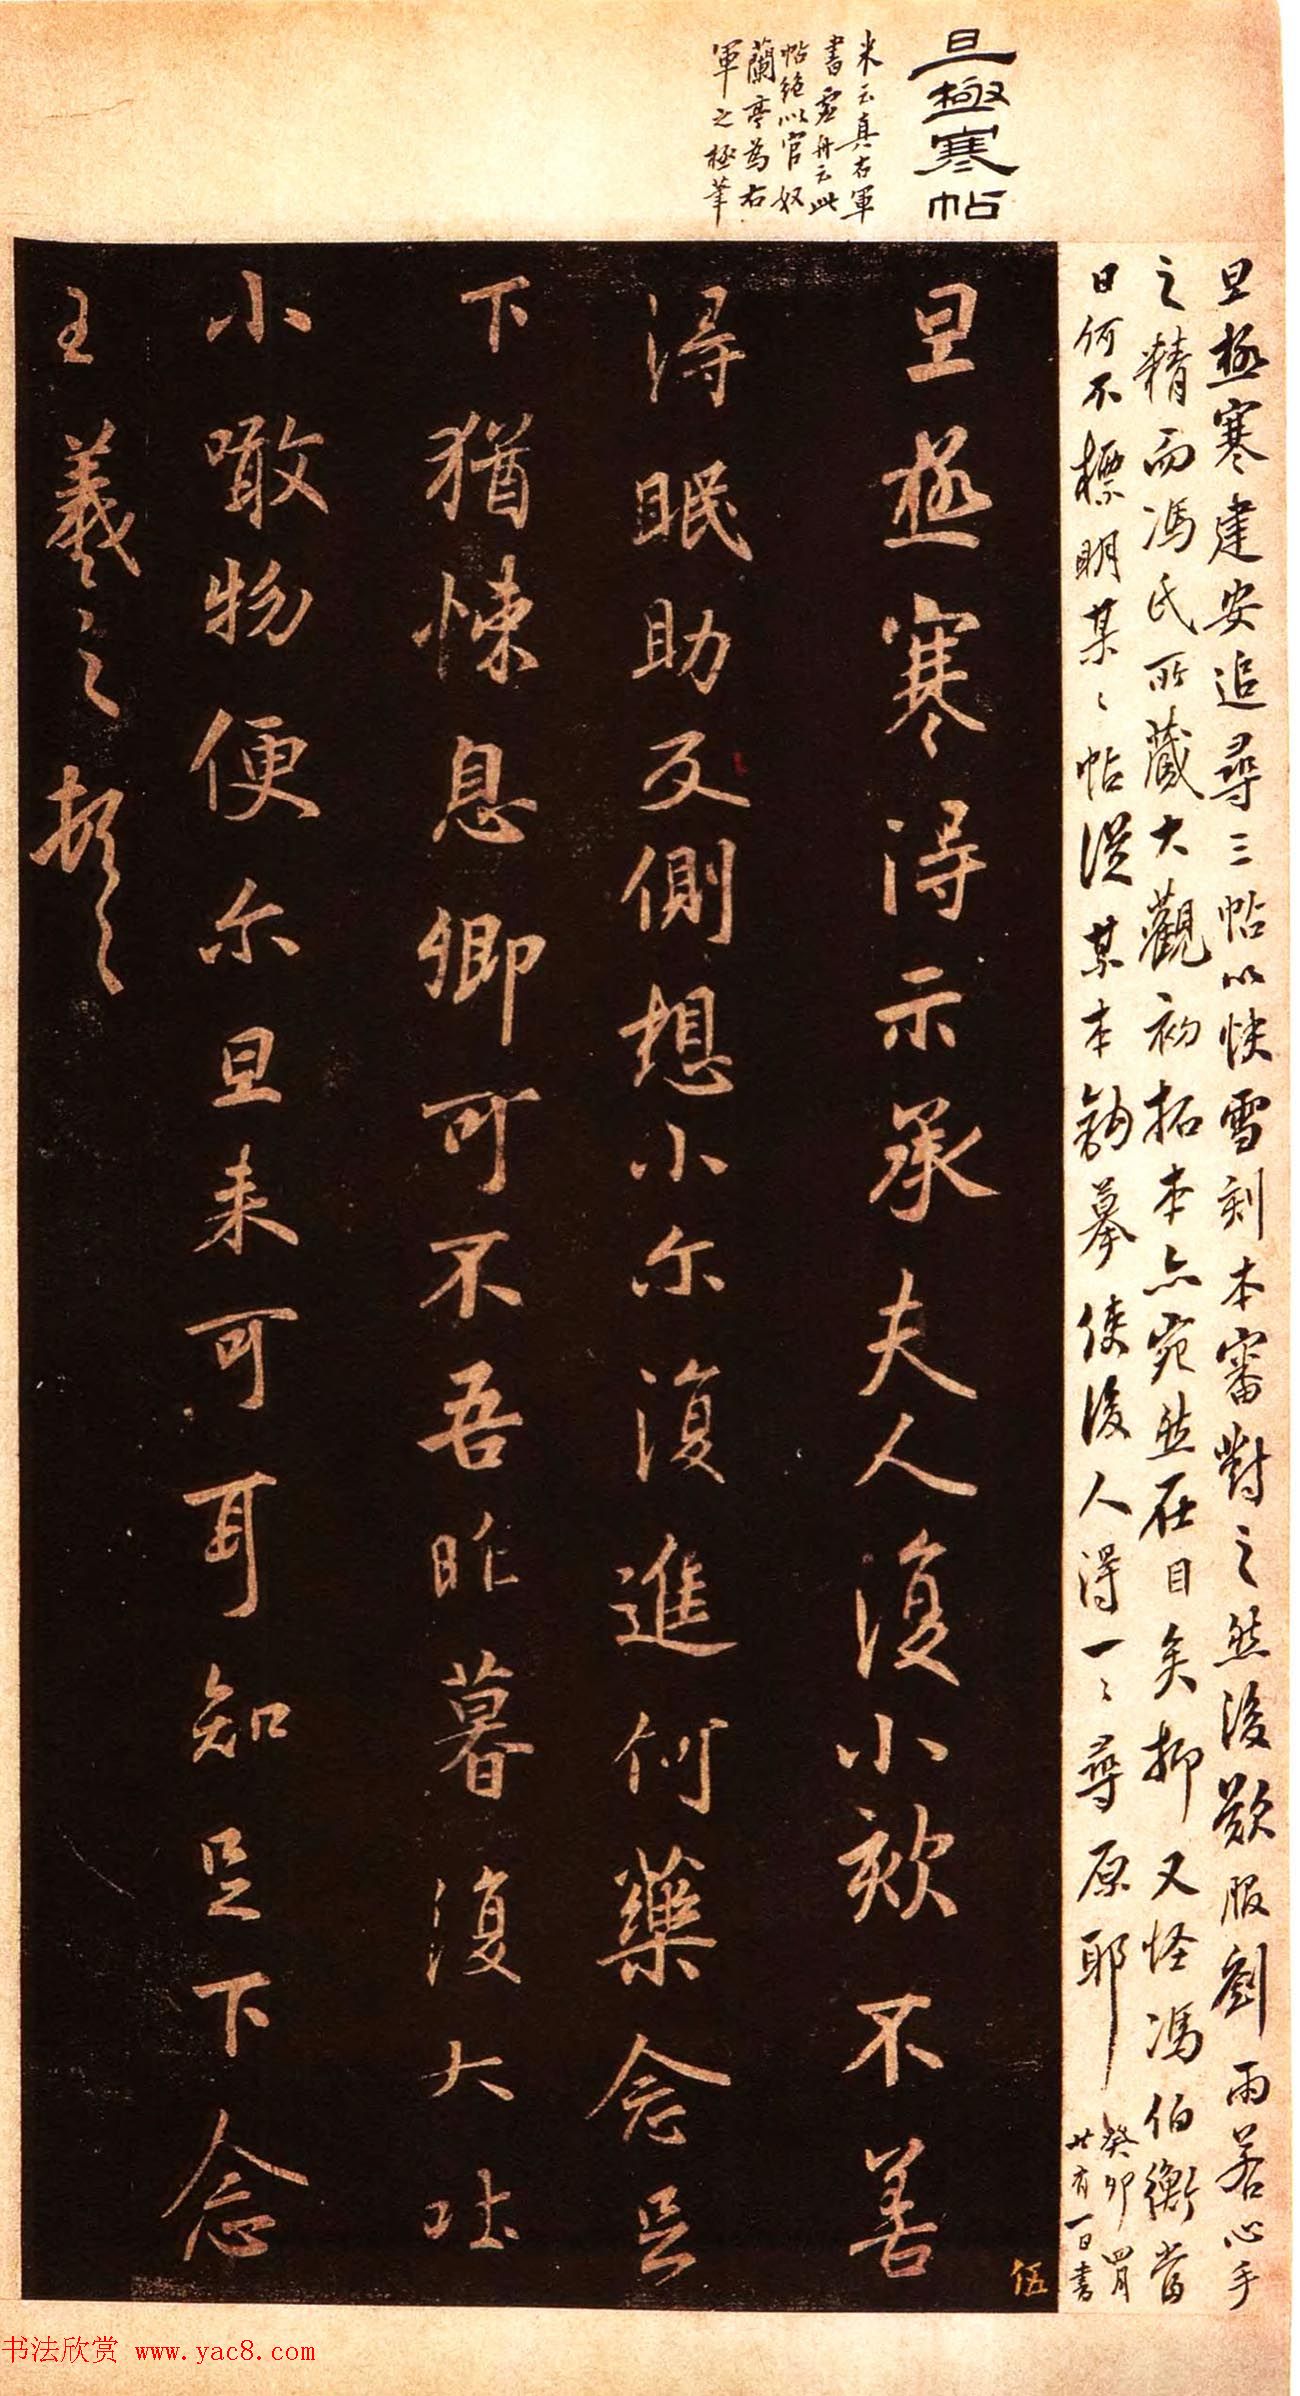 旦極寒帖
米云真右軍
書虛舟云此
帖絕以官奴
蘭亭為右
軍之極筆
旦極寒建安追尋三帖以快雪刻本審對之然後歎服劉雨若心手
之精而馮氏所藏大觀初拓本亦宛然在目矣抑又怪馮伯衡當
日何不標明某〻帖從某本鉤摹使後人得一〻尋原耶
癸卯四月
廿有一日書
旦極寒得示承夫人復小欬不善
得眠助反側想小尒復進何藥念足
下猶悚息卿可不吾昨暮復大吐
小噉物便尒旦来可耳知足下念
王羲之頓〻
伍
书法欣赏 www.yac8.com